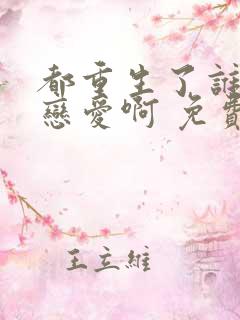 都重生了誰
戀愛啊 免費
王立維